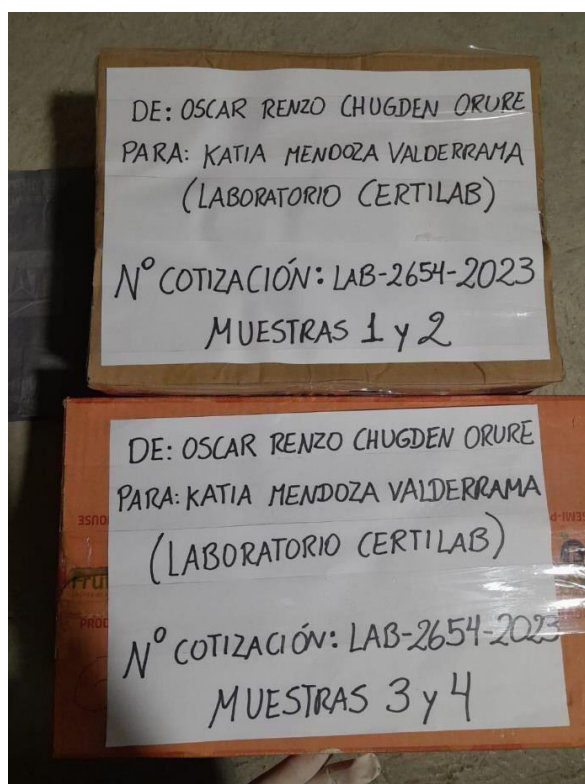 DE: OSCAR RENZO CHUGDEN ORURE
PARA: KATIA MENDOZA VALDERRAMA
(LABORATORIO CERTILAB)
N° COTIZACIÓN: LAB-2654-2023
MUESTRAS 1 y 2
DE: OSCAR RENZO CHUGDEN ORURE
PARA: KATIA MENDOZA VALDERRAMA
(LABORATORIO CERTILAB)
N° COTIZACIÓN: LAB-2654-2023
MUESTRAS 3 y 4